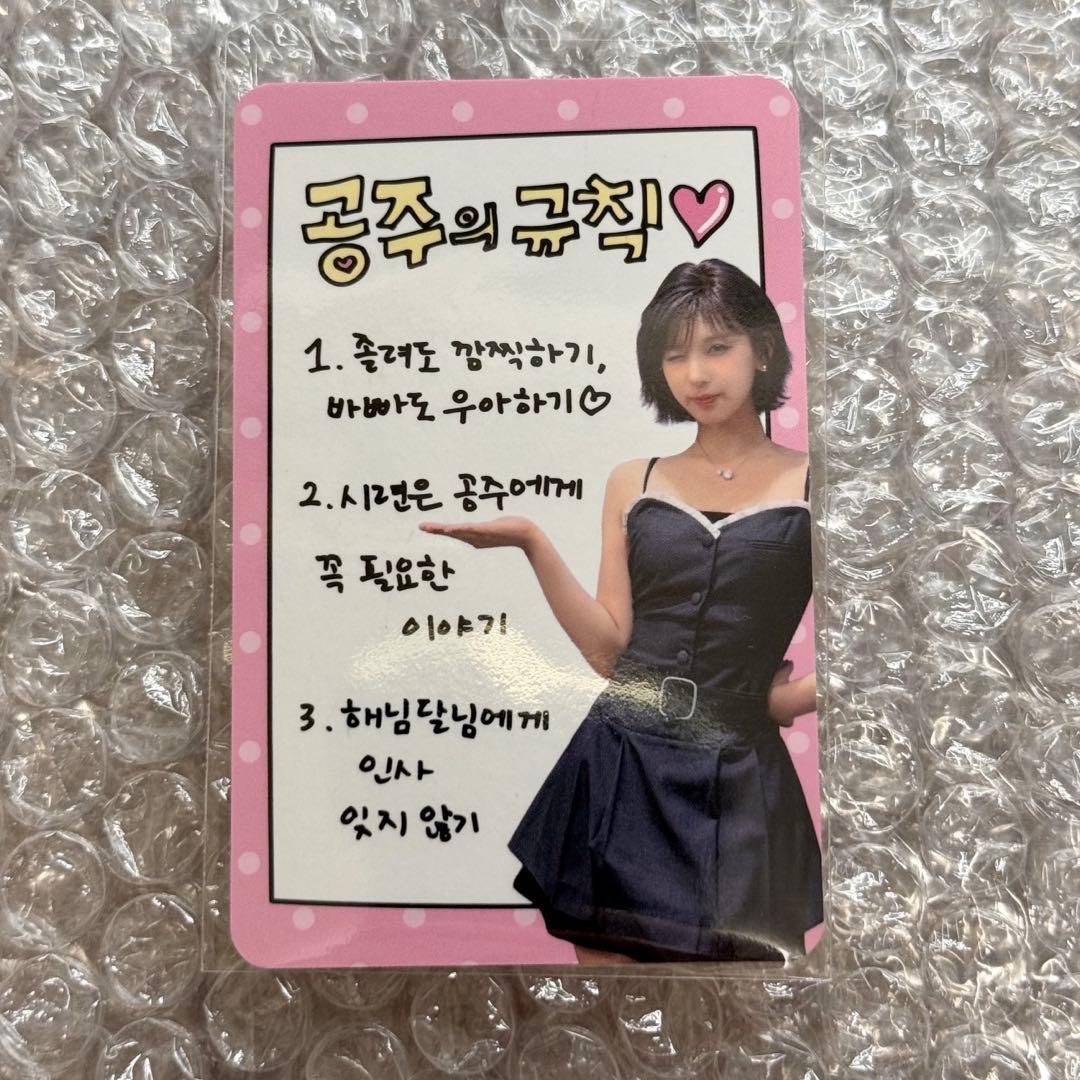 공주의 규칙
1. 졸려도 깜찍하기,
바빠도 우아하기♡
2. 시련은 공주에게
꼭 필요한
이야기
3. 해님달님에게
인사
잊지 않기